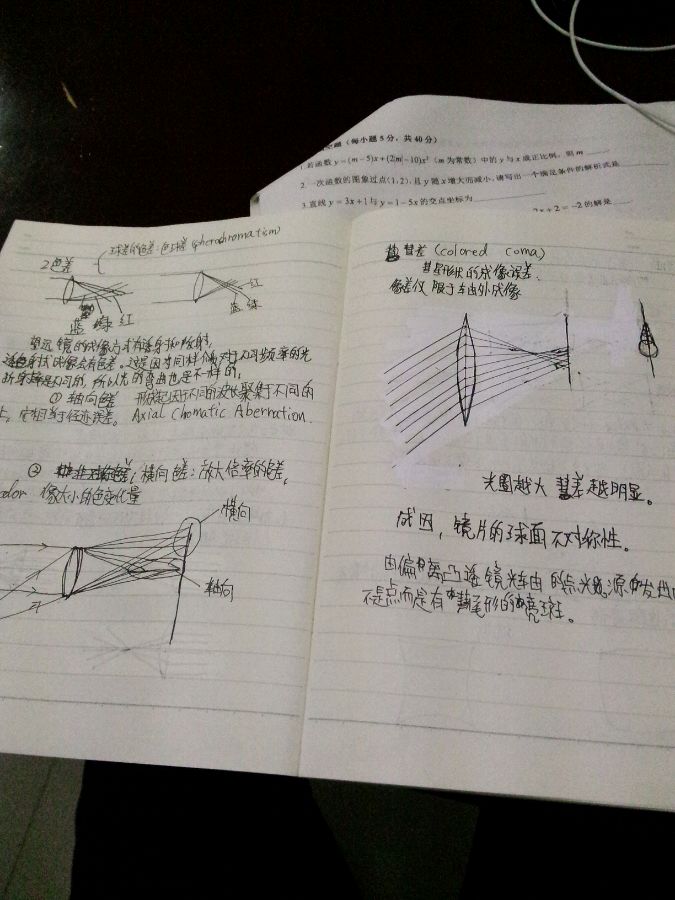 填空题（每小题5分，共40分）
1.若函数y=(m-5)x+(2m-10)x²（m为常数）中的y与x成正比例，则m
2.一次函数的图象过点(1,2),且y随x增大而减小,请写出一个满足条件的解析式是
3.直线y=3x+1与y=1-5x的交点坐标为
=-2的解是
球差的色差:色球差(spherochromatism)
2色差
红
蓝 绿
蓝 绿 红
望远镜的成像方式有透射和反射,
透射式成像会有色差。这是因为同样介质对于不同频率的光
折射率是不同的,所以光的弯曲也是不一样的,
① 轴向色差 形成起因于不同的波长聚集于不同的
上,它相当于径迹误差。Axial Chomatic Aberration.
② 横向色差:放大倍率的色差,
color 像大小的色变化量
横向
轴向
彗差(colored coma)
彗星形状的成像误差.
像差仅限于车由外成像
光圈越大 彗差越明显。
成因,镜片的球面不对称性。
由偏离凸透镜光车由的点光源发出
不是点而是有彗尾形的亮斑。